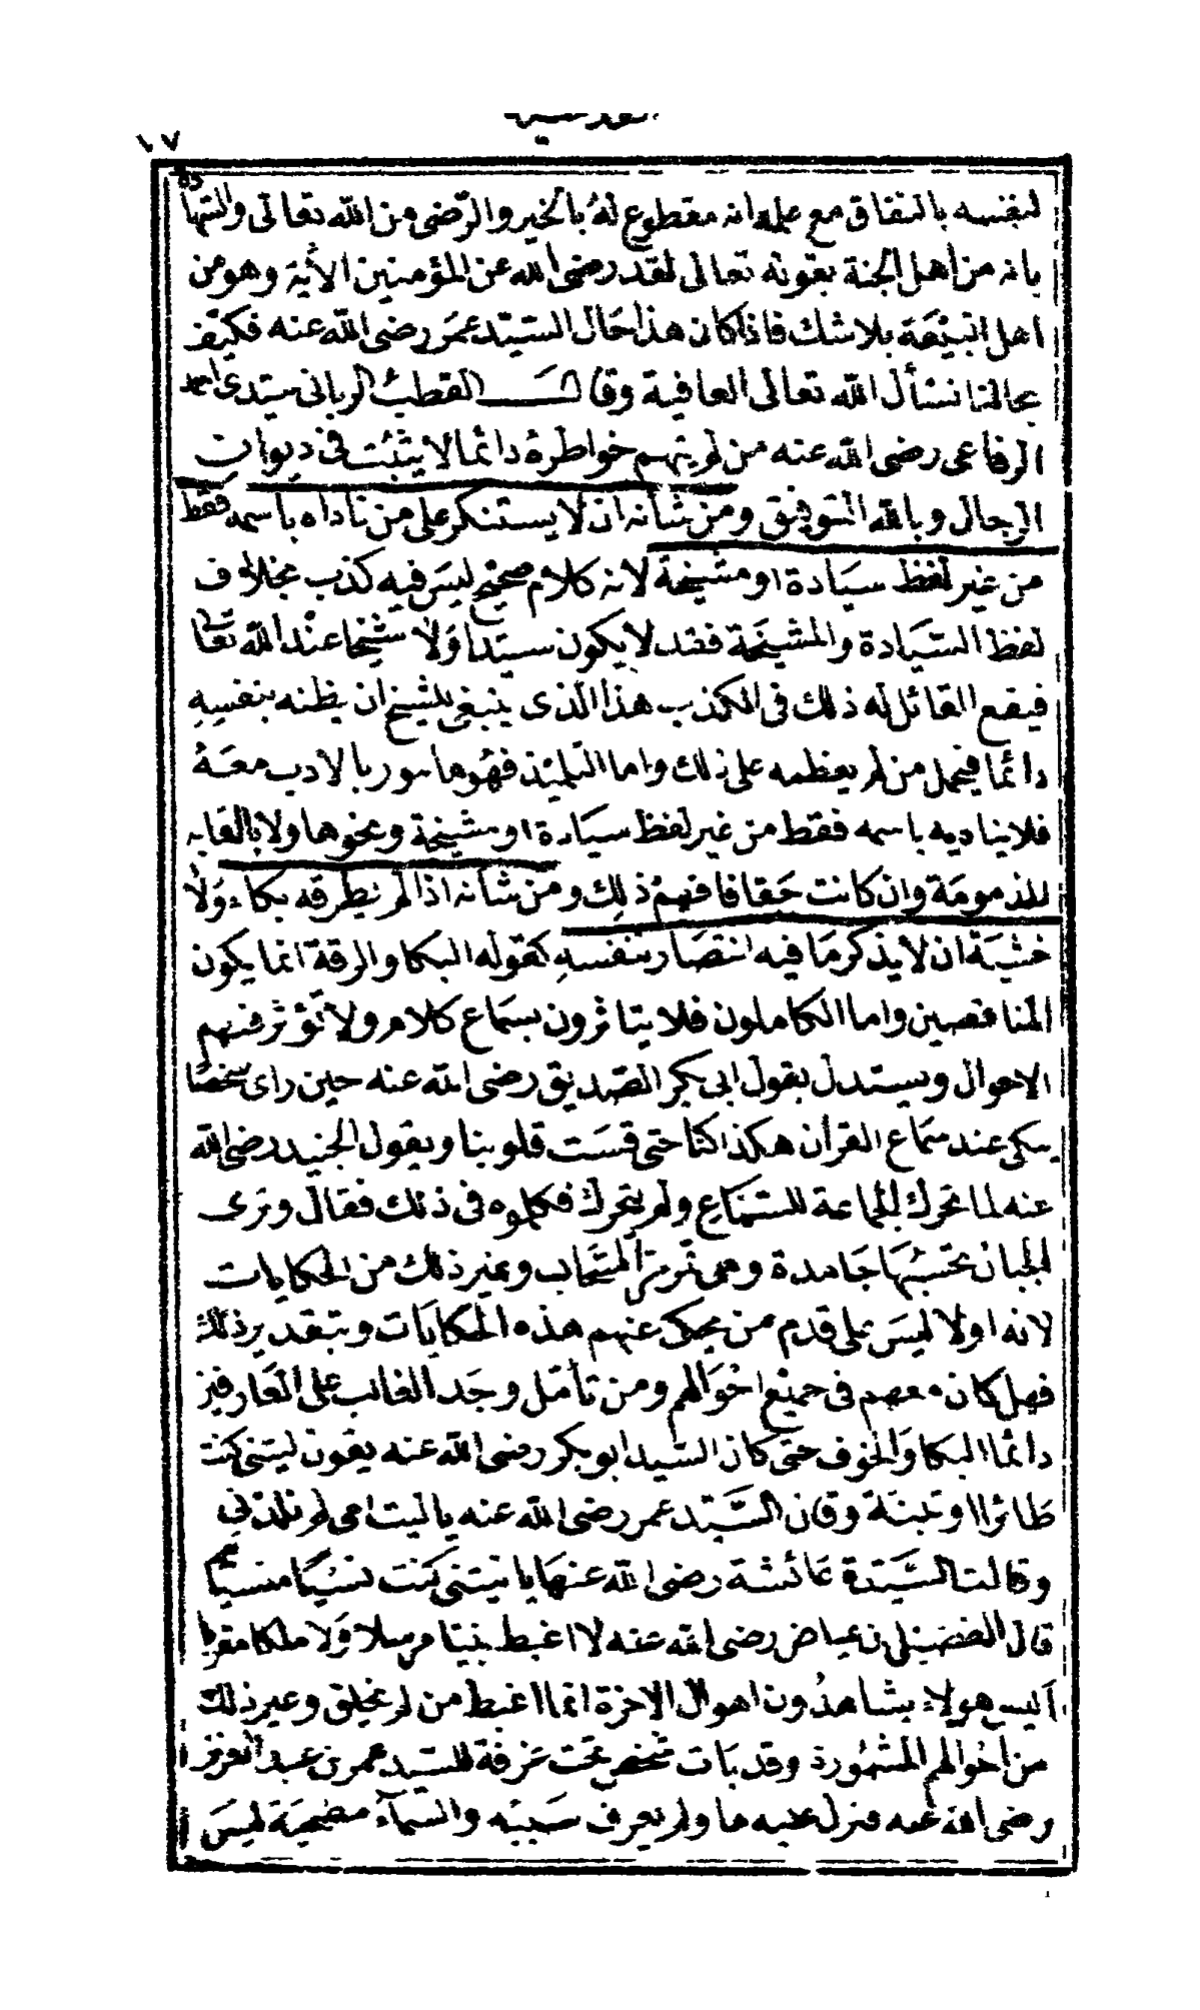 ١٧
لنفسه بالنفاق مع علمه انه مقطوع له بالخير والرضى من الله تعالى والشهادة
بانه من أهل الجنة بقوله تعالى لقد رضى الله عن المؤمنين الأية وهو من
اهل البيعة بلا شك فاذا كان هذا حال السيد عمر رضى الله عنه فكيف
بحالنا نسأل الله تعالى العافية وقال القطب الربانى سيدى احمد
الرفاعى رضى الله عنه من لم يتهم خواطره دائما لا يثبت فى ديوان
الرجال وبالله التوفيق ومن شأنه ان لا يستنكر على من ناداه باسمه فقط
من غير لفظ سيادة او مشيخة لانه كلام صحيح ليس فيه كذب بخلاف
لفظ السيادة والمشيخة فقد لا يكون سيدا ولا شيخا عند الله تعالى
فيقع القائل له ذلك فى الكذب هذا الذى ينبغى للشيخ ان يظنه بنفسه
دائما فيحمل من لم يعظمه على ذلك واما التلميذ فهو مامور بالادب معه
فلا يناديه باسمه فقط من غير لفظ سيادة او مشيخة ونحوها ولا بالقابه
المذمومة وان كانت حقا فافهم ذلك ومن شأنه اذا لم نطرقه بكاء ولا
خشية ان لا يذكر ما فيه انتصار لنفسه كقوله البكا والرقة انما يكون
للناقصين واما الكاملون فلا يتاثرون بسماع كلام ولا تؤثر فيهم
الاحوال ويستدل بقول ابى بكر الصديق رضى الله عنه حين راى شخصا
يبكى عند سماع القرآن هكذا كنا حتى قست قلوبنا وبقول الجنيد رضى الله
عنه لما تحرك الجماعة للسماع ولم يتحرك فكلموه فى ذلك فقال وترى
الجبال تحسبها جامدة وهى تمر مر السحاب وغير ذلك من الحكايات
لانه اولا ليس على قدم من يحكى عنهم هذه الحكايات وبتقدير ذلك
فهل كان معهم فى جميع احوالهم ومن تأمل وجد الغالب على العارفين
دائما البكا والخوف حتى كان السيد ابو بكر رضى الله عنه يقول ليتنى كنت
طائرا او تبنة وقال السيد عمر رضى الله عنه يا ليت امى لم تلدنى
وقالت السيدة عائشة رضى الله عنها يا ليتنى كنت نسيا منسيا
قال الفضيل بن عياض رضى الله عنه لا اغبط نبيا مرسلا ولا ملكا مقربا
اليس هولاء يشاهدون اهوال الاخرة انما اغبط من لم يخلق وغير ذلك
من احوالهم المشهورة وقد بات شخص تحت غرفة للسيد عمر بن عبد العزيز
رضى الله عنه فنزل عليه ما ولم يعرف سببه والسماء مضحية ليس